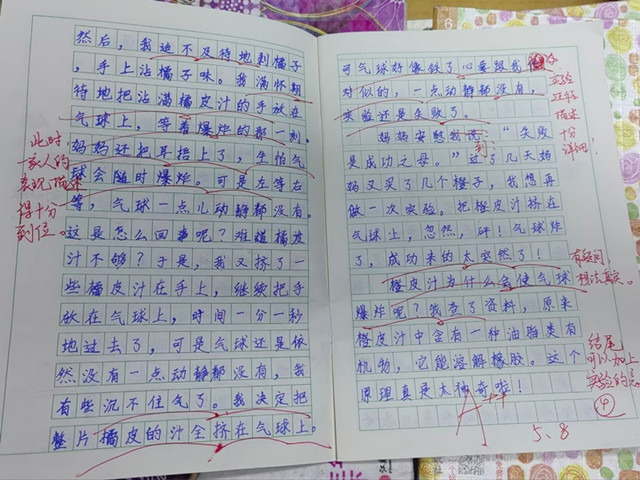 然后，我迫不及待地剥橘子
，手上沾橘子味。我满怀期
待地把沾满橘皮汁的手放在
气球上，等着爆炸的那一刻。
妈妈还把耳捂上了，生怕气
球会随时爆炸。可是左等右
等，气球一点儿动静都没有。
这是怎么回事呢？难道橘皮
汁不够？于是，我又挤了一
些橘皮汁在手上，继续把手
放在气球上，时间一分一秒
地过去了，可是气球还是依
然没有一点动静都没有，我
有些沉不住气了。我决定把
整片橘皮的汁全挤在气球上。
此时
家人的
表现，描述
得十分
到位。
可气球好像铁了心要跟我作
对似的，一点动静都没有，
实验还是失败了。
妈妈安慰我说：“失败
是成功之母。”过了几天妈
妈又买了几个橙子，我想再
做一次实验。把橙皮汁挤在
气球上，忽然，砰！气球炸
了，成功来的太突然了！
橙皮汁为什么会使气球
爆炸呢？我查了资料，原来
橙皮汁中含有一种油脂类有
机物，它能溶解橡胶。这个
原理真是太神奇啦！
实验
过程
描述
十分
详细！
有疑问，
想法真实。
结尾
可以加上
实验的
4
A++
5、8